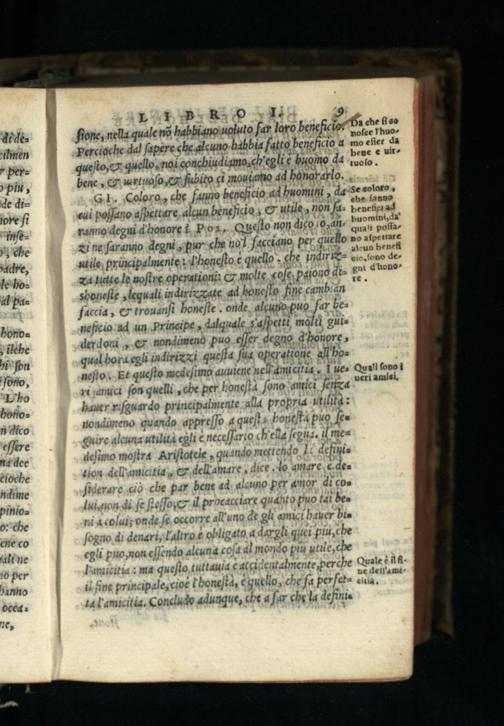 LIBRO I. 9
sione, nella quale nõ habbiano uoluto far loro beneficio.
Percioche dal sapere che alcuno habbia fatto beneficio a
questo, & quello, noi conchiudiamo, ch'egli è huomo da
bene, & uirtuoso, & subito ci mouiamo ad honorarlo.
GI. Coloro, che fanno beneficio ad huomini, da
cui possano aspettare alcun beneficio, & utile, non sa-
ranno degni d'honore? POS. Questo non dico io, an-
zi ne saranno degni, pur che no'l facciano per quello
utile principalmente: l'honesto è quello, che indiriz-
za tutte le nostre operationi: & molte cose paiono di-
shoneste, lequali indirizzate ad honesto fine cambian
faccia, & trouansi honeste. onde alcuno può far be-
neficio ad un Principe, dalquale s'aspetti molti gui-
derdoni, & nondimeno può esser degno d'honore,
qual hora egli indirizzi questa sua operatione all'ho-
nesto. Et questo medesimo auuiene nell'amicitia. I ue-
ri amici son quelli, che per honestà sono amici senza
hauer risguardo principalmente alla propria utilità:
nondimeno quando appresso a questa honestà può se-
guire alcuna utilità egli è necessario ch'ella segua. il me-
desimo mostra Aristotele, quando mettendo la defini-
tion dell'amicitia, & dell'amare, dice. lo amare è de-
siderare ciò che par bene ad alcuno per amor di co-
lui, non di se stesso, & il procacciare quanto può tai be-
ni a colui; onde se occorre all'uno de gli amici hauer bi-
sogno di denari, l'altro è obligato a dargli quei piu, che
egli puo, non essendo alcuna cosa al mondo piu utile, che
l'amicitia: ma questo, tuttauia è accidentalmente, perche
il fine principale, cioè l'honestà, è quello, che fa perfet-
ta l'amicitia. Concludo adunque, che a far che la defini-
Da che si co
nosce l'huo-
mo esser da
bene e uir-
tuoso.
Se coloro,
che fanno
beneficio ad
huomini, da'
quali possa-
no aspettare
alcun benefi
cio, sono de-
gni d'hono-
re.
Quali sono i
ueri amici.
Quale è il fi-
ne dell'ami-
citia.